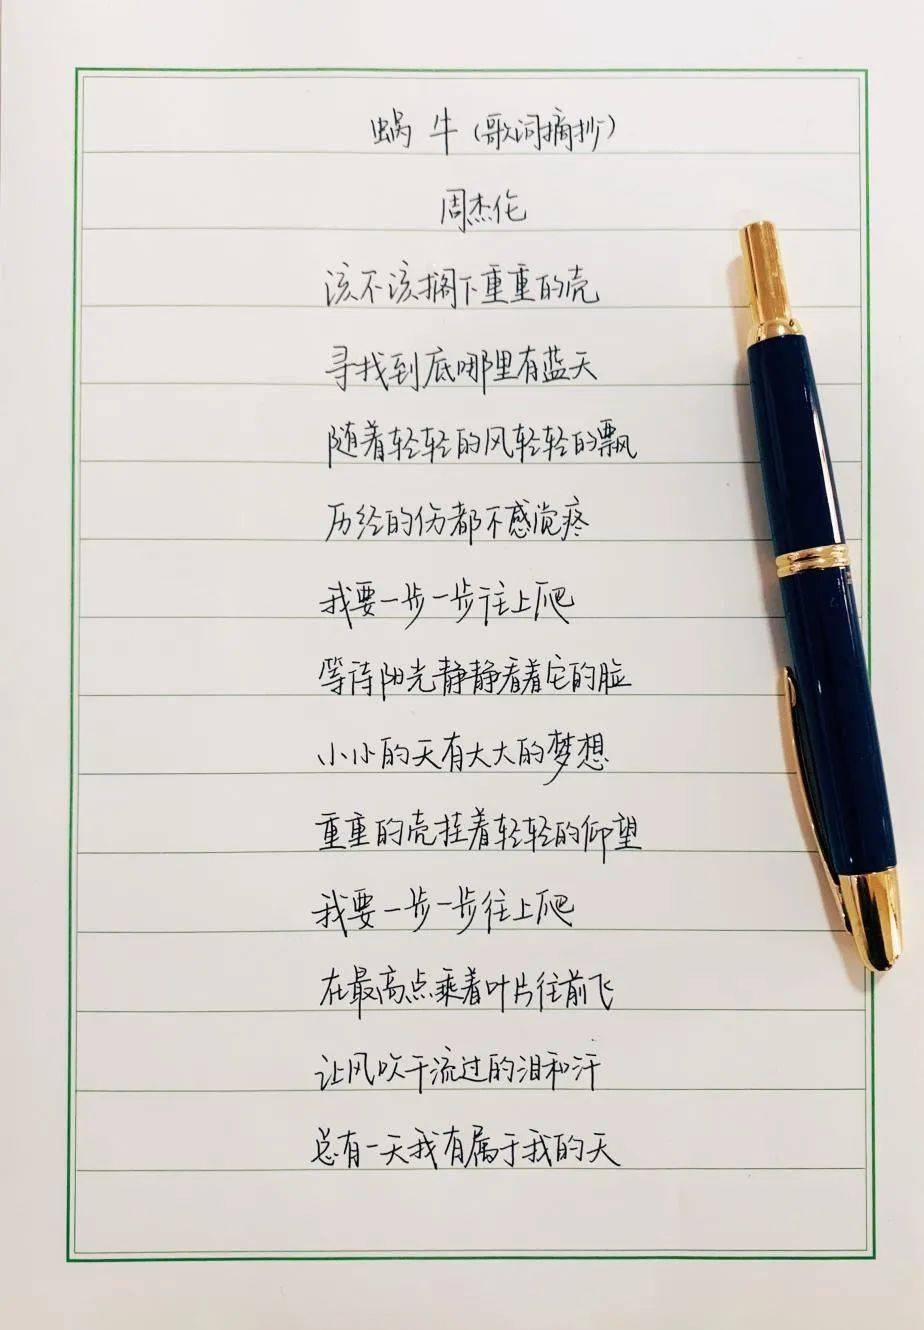 蜗牛(歌词摘抄)
周杰伦
该不该搁下重重的壳
寻找到底哪里有蓝天
随着轻轻的风轻轻的飘
历经的伤都不感觉疼
我要一步一步往上爬
等待阳光静静看着它的脸
小小的天有大大的梦想
重重的壳挂着轻轻的仰望
我要一步一步往上爬
在最高点乘着叶片往前飞
让风吹干流过的泪和汗
总有一天我有属于我的天